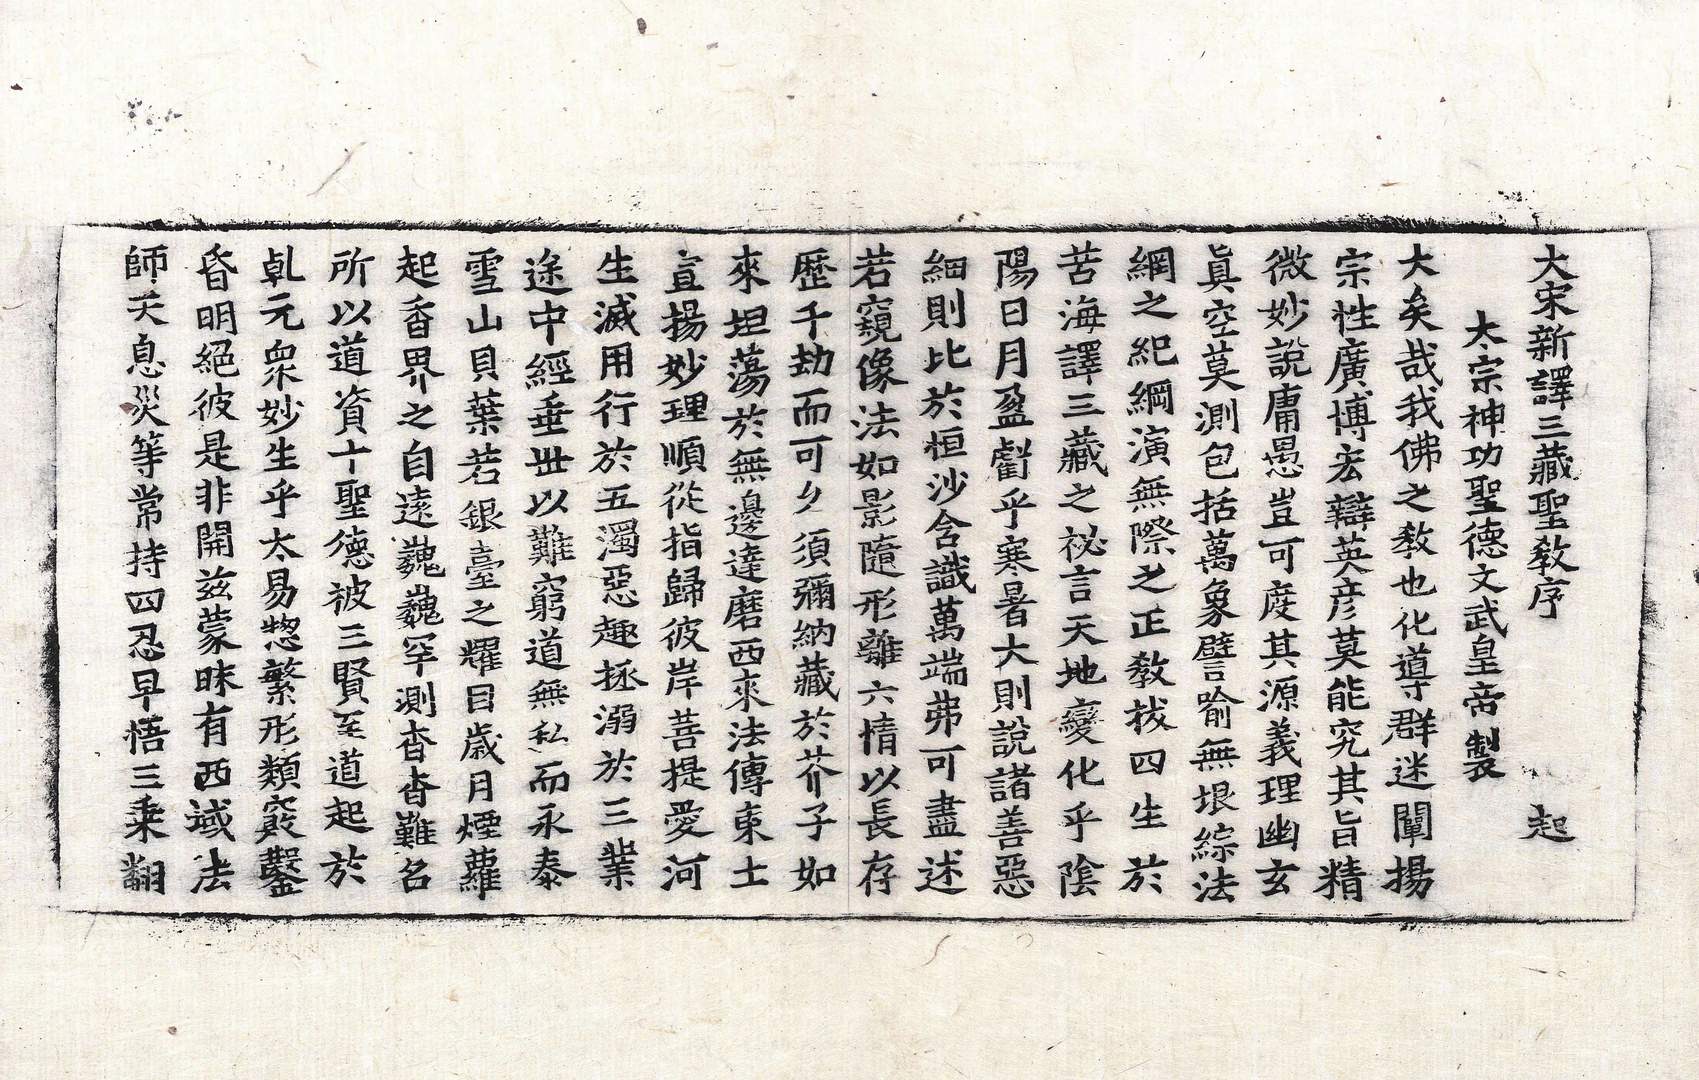 大宋新譯三藏聖敎序 起
太宗神功聖德文武皇帝製
大矣哉我佛之敎也化導群迷闡揚
宗性廣博宏辯英彦莫能究其旨精
微妙說庸愚豈可度其源義理幽玄
眞空莫測包括萬象譬喻無垠綜法
網之紀綱演無際之正敎拔四生於
苦海譯三藏之祕言天地變化乎陰
陽日月盈虧乎寒暑大則說諸善惡
細則比於恒沙含識萬端弗可盡述
若窺像法如影隨形離六情以長存
歷千劫而可久須彌納藏於芥子如
來坦蕩於無邊達磨西來法傳東土
宣揚妙理順從指歸彼岸菩提愛河
生滅用行於五濁惡趣拯溺於三業
途中經垂世以難窮道無私而永泰
雪山貝葉若銀臺之耀目歲月煙蘿
起香界之自遠巍巍罕測杳杳難名
所以道資十聖德被三賢至道起於
乹元衆妙生乎太易惣繁形類竅鑿
昏明絕彼是非開玆蒙昧有西域法
師天息災等常持四忍早悟三乗翻